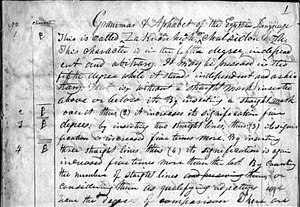 1
No
Grammar & Alphabet of the Egyptian Language
1 This is called Za Ki
This character is in the fifth degree, independ
ent and arbitrary. It may be preserved in the
fifth degree while it stands independent and arbit
rary: That is, without a straight mark inserted
above or below it. By inserting a straight mark
2 over it thus (2) it increases its signification five
3 degrees: by inserting two straight lines, thus: (3) its signi
fication is increased five times more. By inserting
4 three straight lines thus (4) its signification is again
increased five times more than the last. By counting
the numbers of straight lines and preserving them or
considering them as qualifying adjectives we
have the degrees of comparison There are